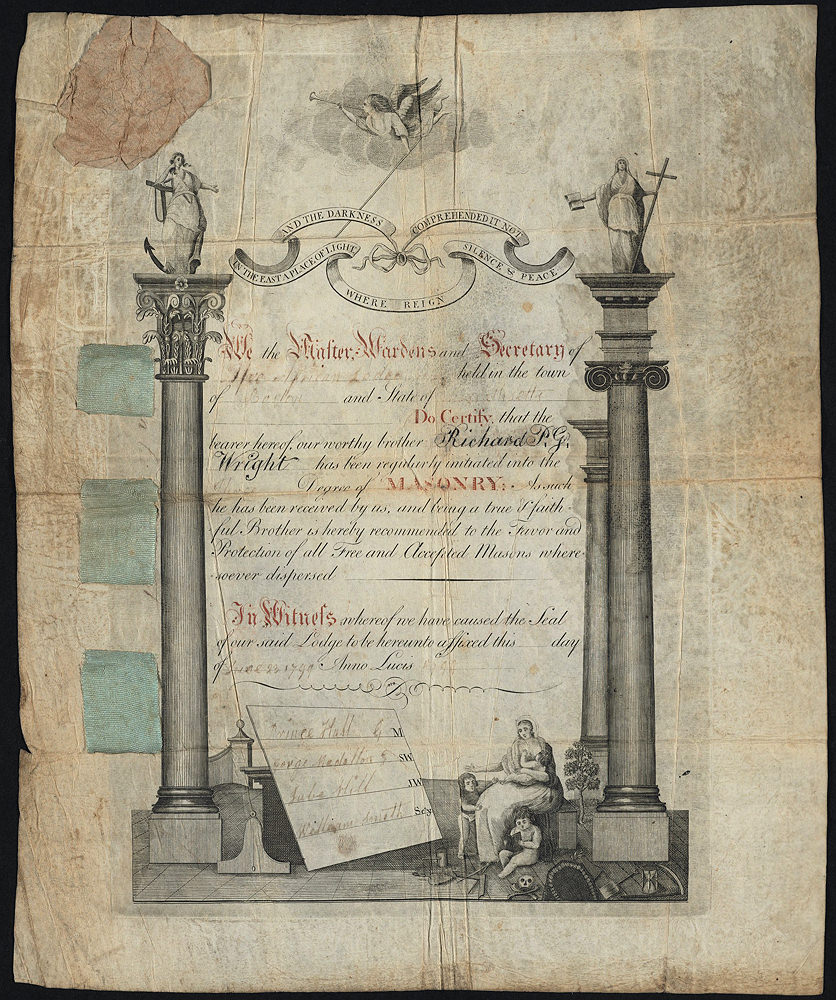 AND THE DARKNESS COMPREHENDED IT NOT
IN THE EAST A PLACE OF LIGHT
WHERE REIGN
SILENCE & PEACE
We the Master, Wardens and Secretary of
African Lodge held in the town
of Boston and State of
Do Certify, that the
bearer hereof, our worthy brother Richard P. G.
Wright has been regularly initiated into the
Degree of MASONRY: As such
he has been received by us, and being a true & faith-
ful Brother is hereby recommended to the Favor and
Protection of all Free and Accepted Masons where-
soever dispersed
In Witness whereof we have caused the Seal
of our said Lodge to be hereunto affixed this day
of June 23 1799 Anno Lucis
Prince Hall G M
SW
Juba Hill JW
William Smith Secy